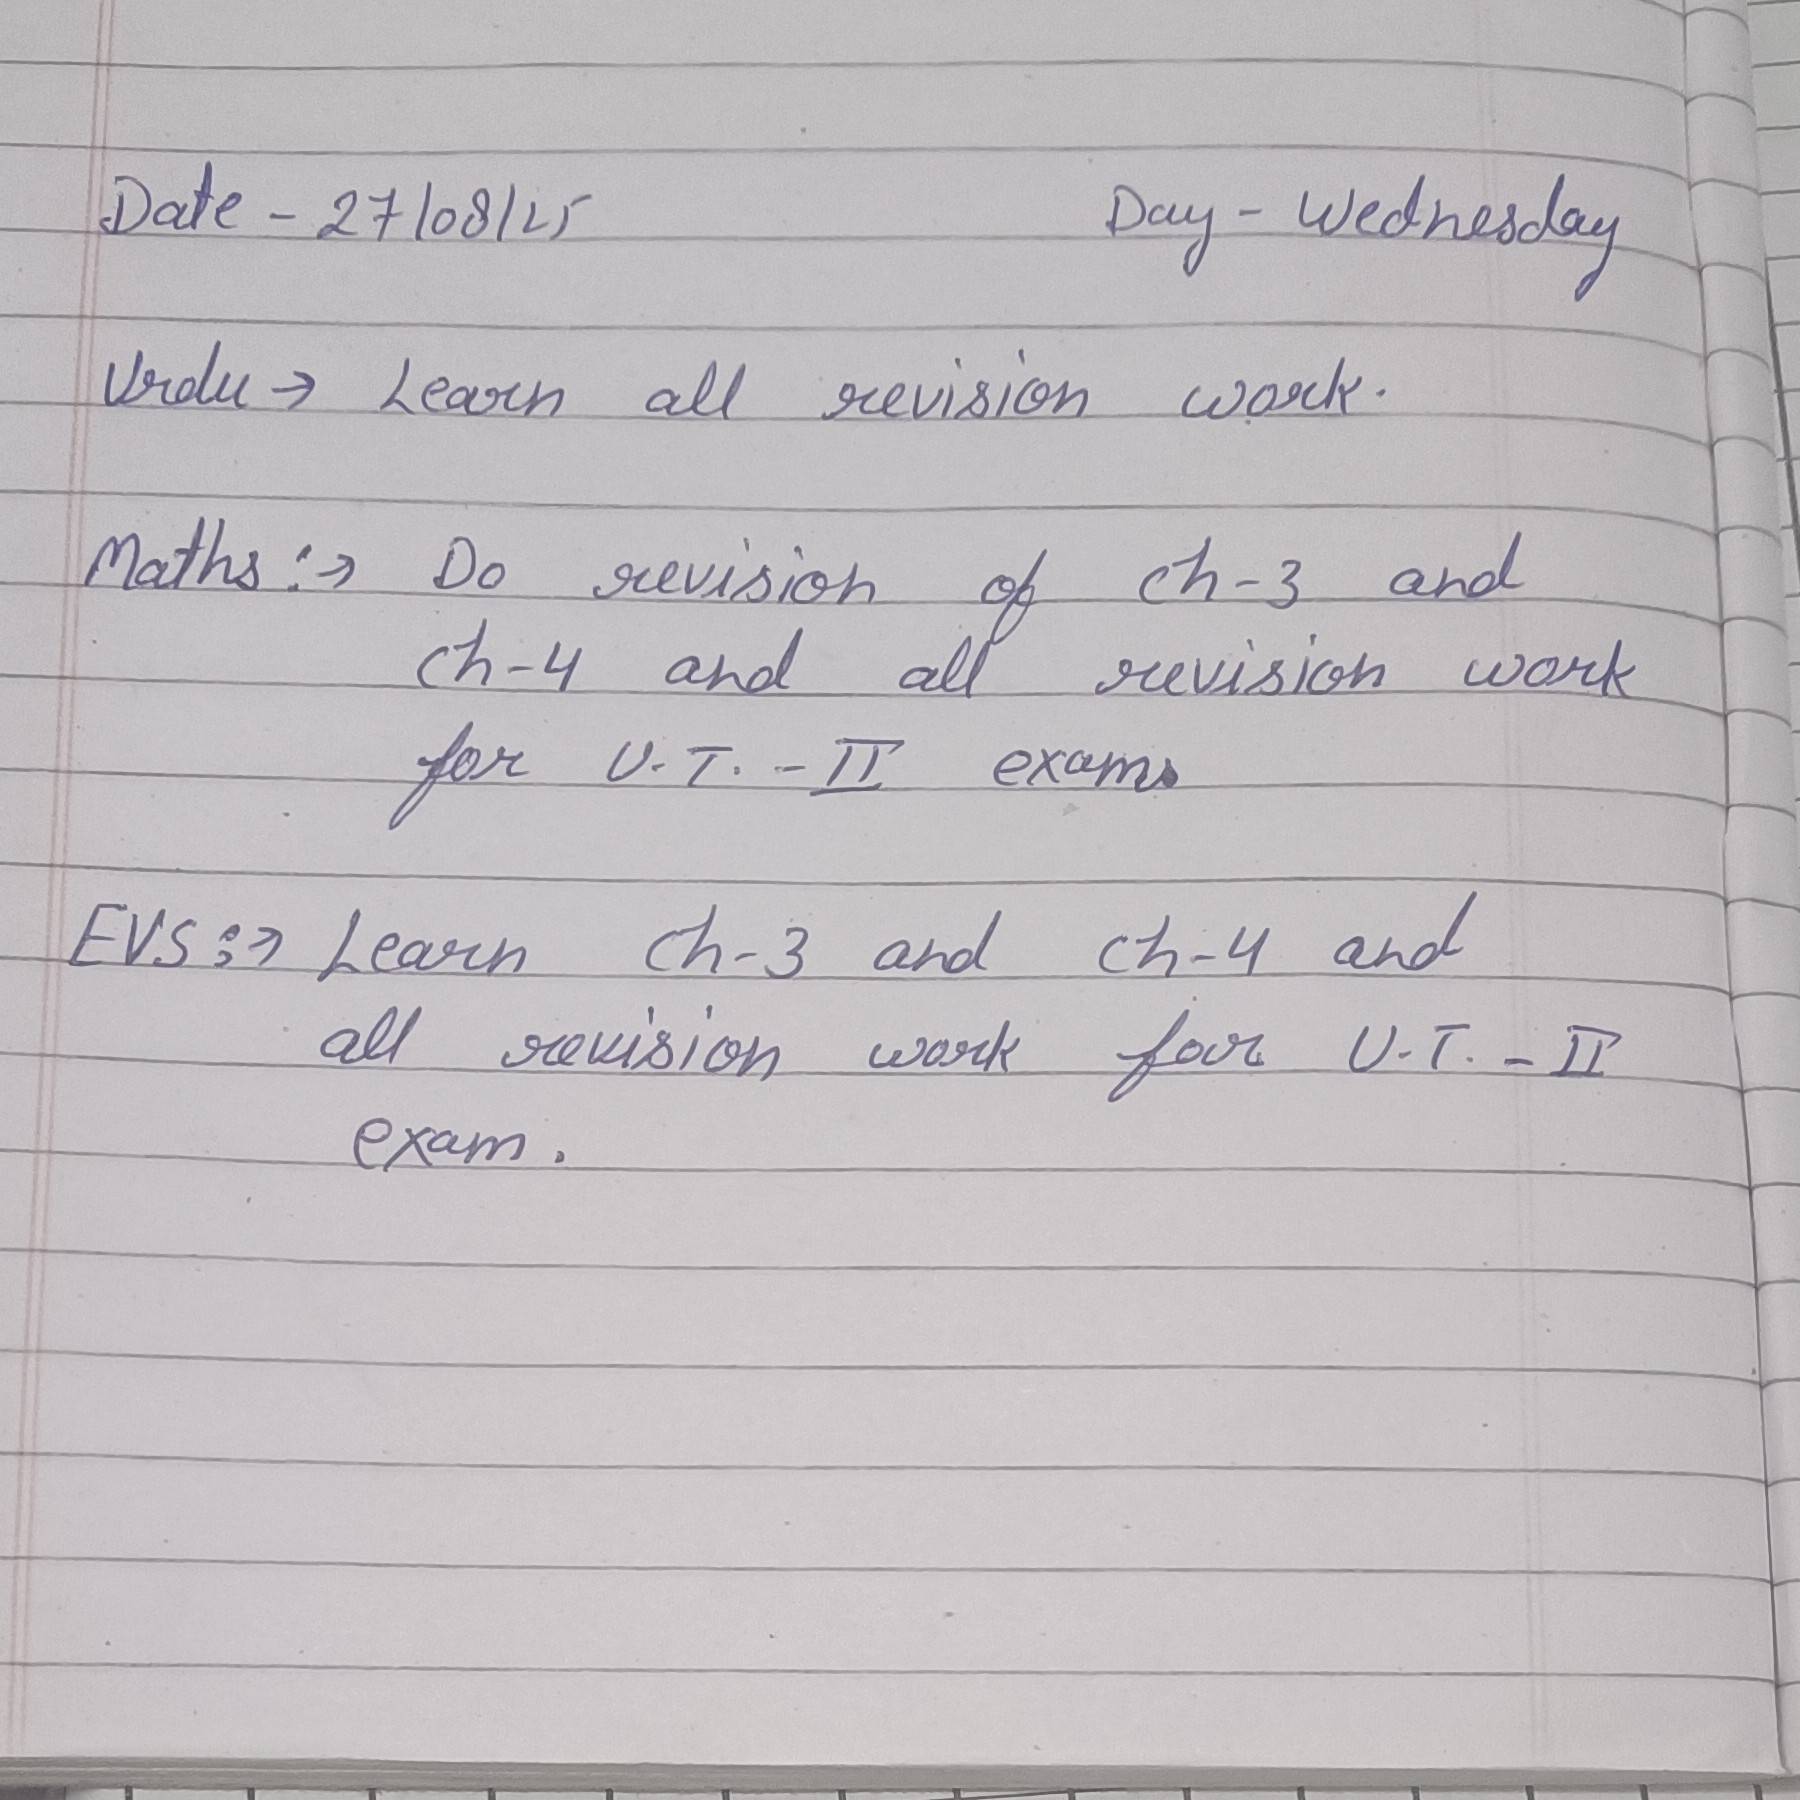 Date - 27/08/25 Day - Wednesday
Urdu → Learn all revision work.
Maths :→ Do revision of ch-3 and
ch-4 and all revision work
for U.T. - II exam.
EVS :→ Learn ch-3 and ch-4 and
all revision work for U.T. - II
exam.